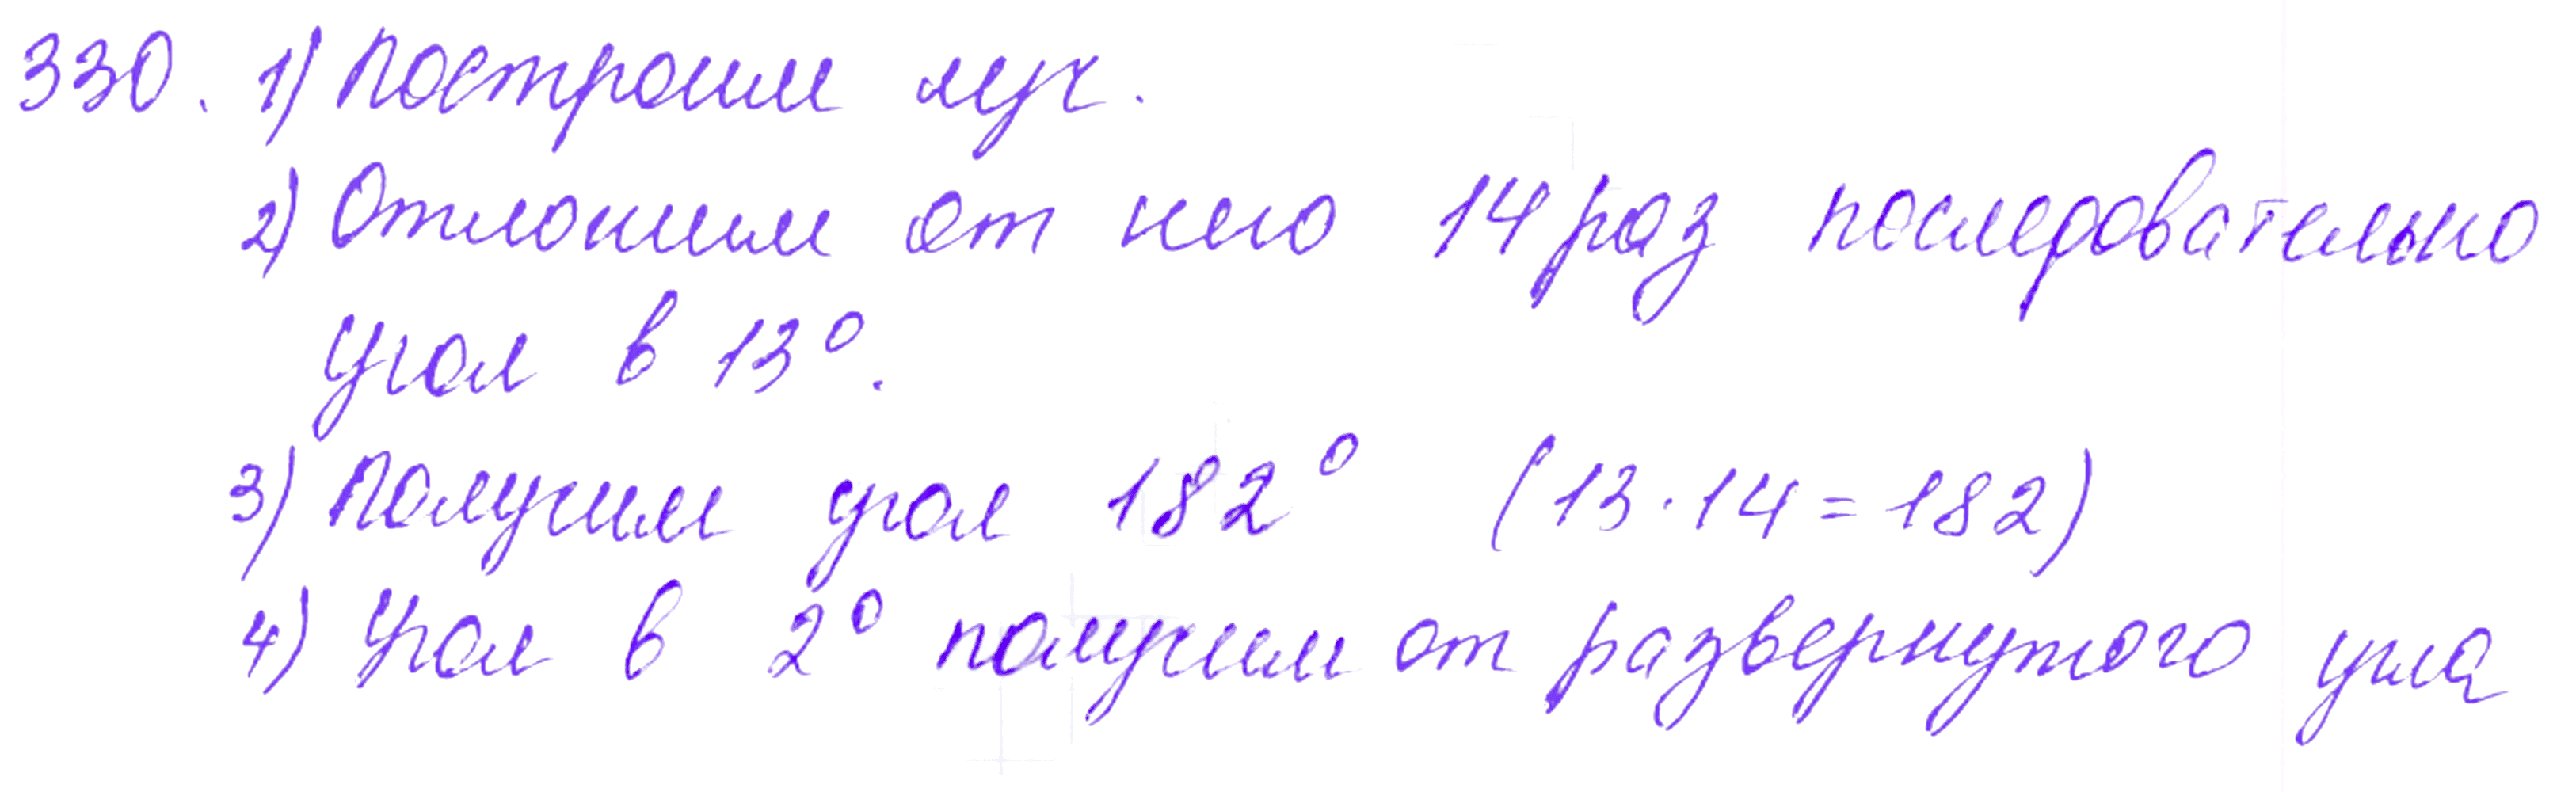 330. 1) Построим луч.
2) Отложим от него 14 раз последовательно
угол в 13°.
3) Получим угол 182° (13·14=182)
4) Угол в 2° получим от развернутого угла